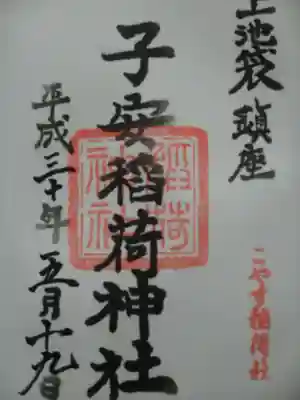 上池袋 鎮座
子安稲荷神社
稲荷神社
平成三十年 五月十九日
こやす稲荷社